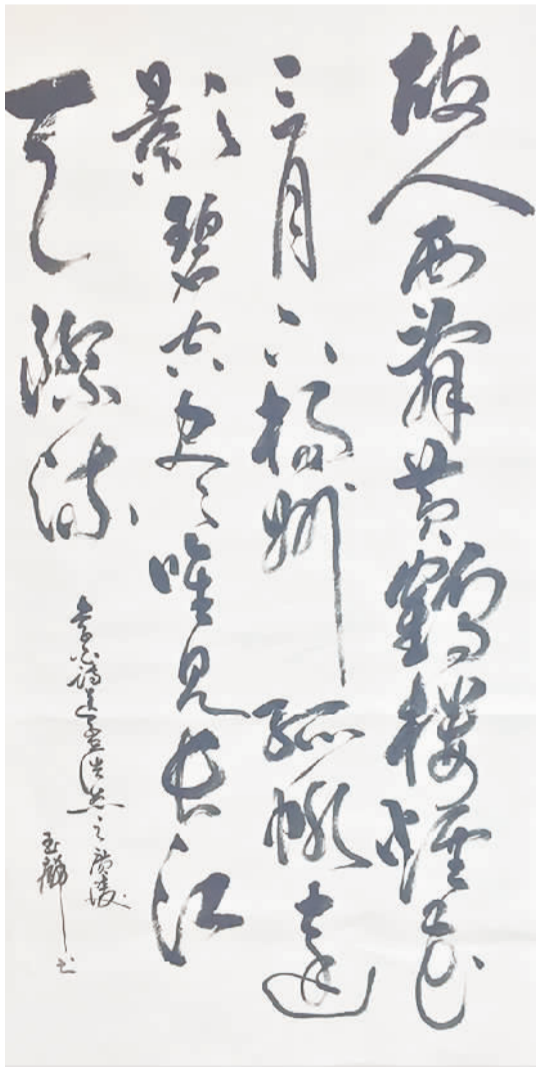 故人西辭黄鶴樓煙花
三月下揚州孤帆遠
影碧空尽唯見長江
天際流
李白詩送孟浩然之廣陵